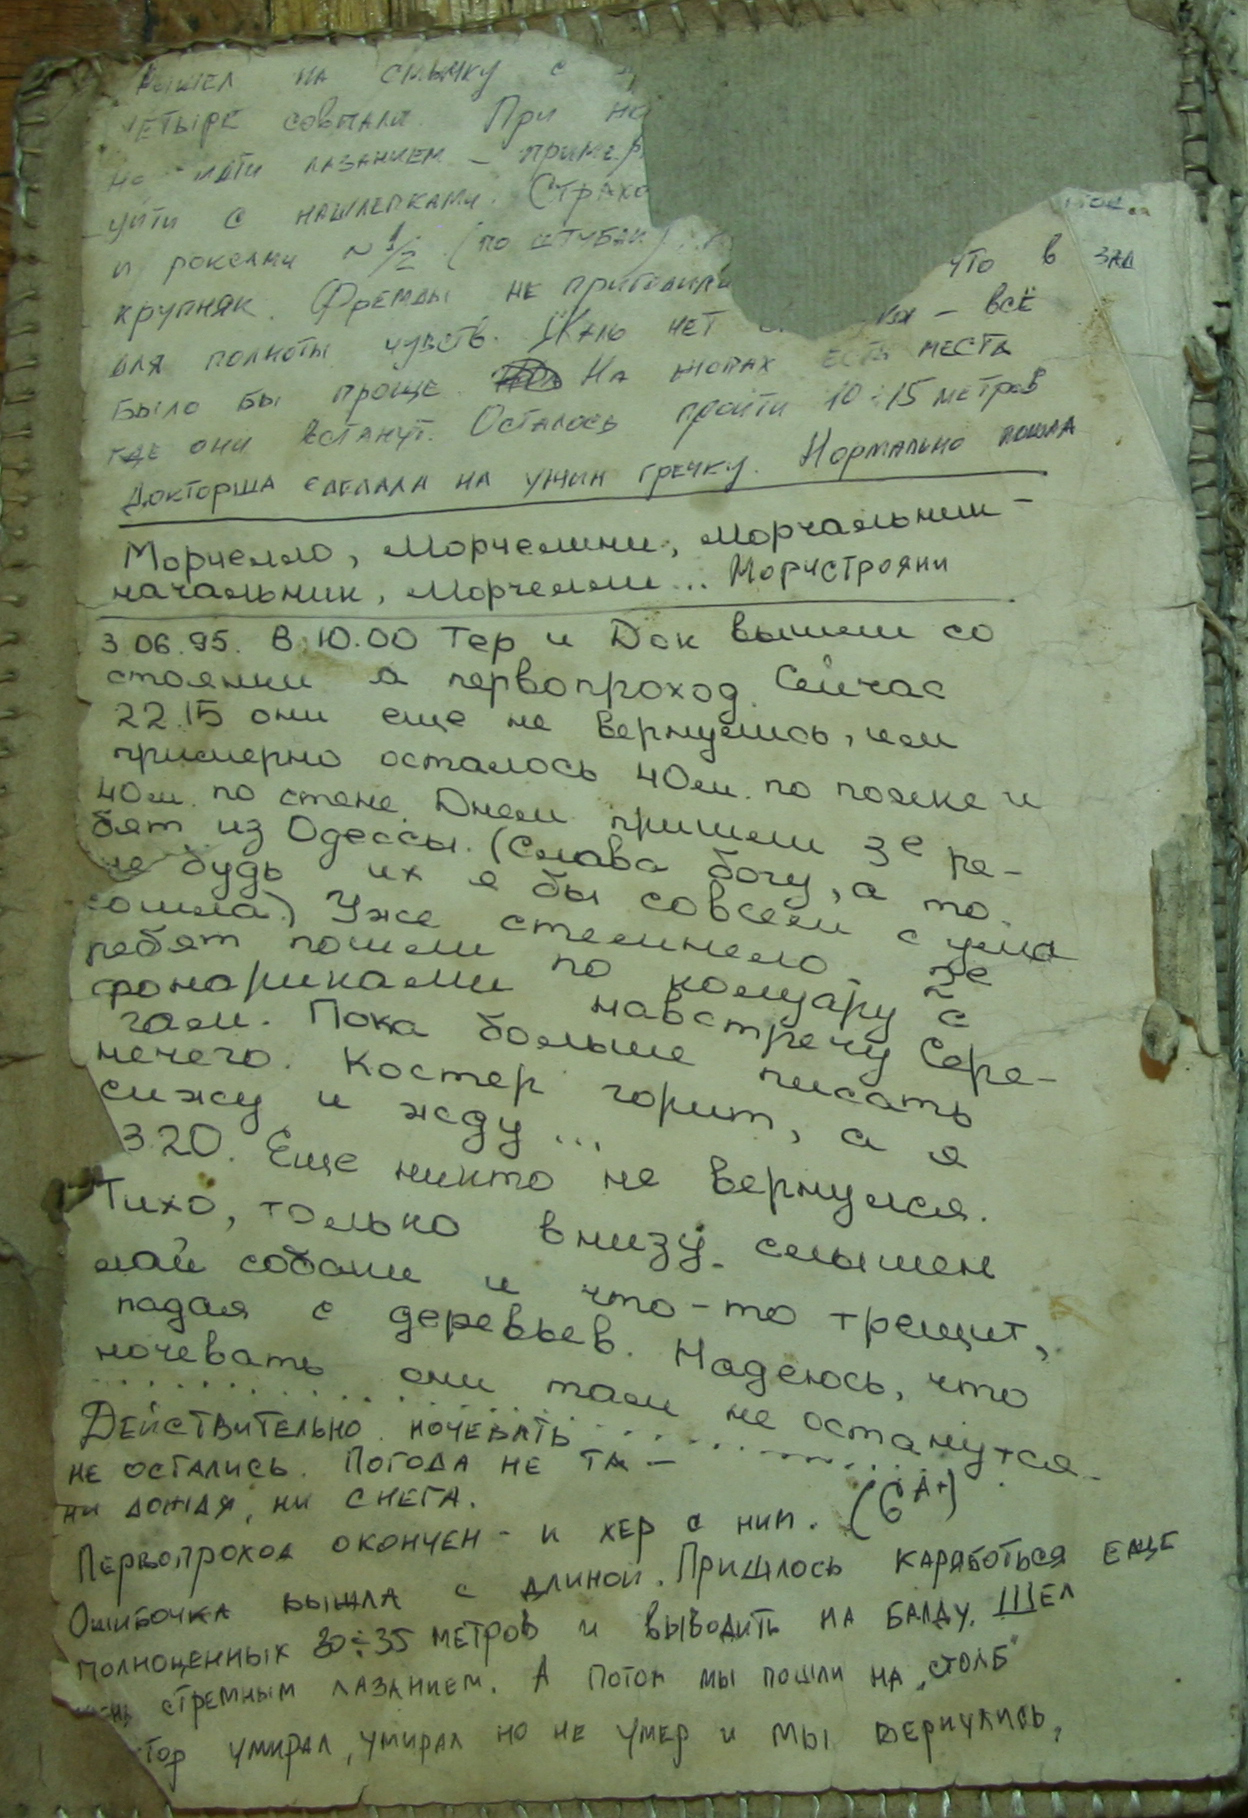 вышел на смычку с
четыре совпали. При на
но идти лазанием – пример
уйти с нашлепками. Страхо
и роксами ~ 1/2 (по штубам)
крупняк. Фремды не пригодили что в зад
для полноты чувств. Жаль нет – всё
было бы проще. На жопах есть места
где они встанут. Осталось пройти 10÷15 метров
Докторша сделала на ужин гречку. Нормально пошла
Морчелло, Морчелини, Морчальник–
начальник, Морчелли... Морчстрояни
3.06.95. В 10.00 Тер и Док вышли со
стоянки а первопроход. Сейчас
22.15 они еще не вернулись, им
примерно осталось 40м. по полке и
40м. по стене. Днем пришли 3е ре-
бят из Одессы. (Слава богу, а то
не будь их я бы совсем с ума
сошла.) Уже стемнело. 2е
ребят пошли по кошару с
фонариками навстречу Сере-
гам. Пока больше писать
нечего. Костер горит, а я
сижу и жду...
3.20. Еще никто не вернулся.
Тихо, только внизу слышен
лай собаки и что-то трещит,
падая с деревьев. Надеюсь, что
ночевать они там не останутся.
Действительно ночевать
не остались. Погода не та –
ни дождя, ни снега.
Первопроход окончен – и хер с ним. (6 A+)
Ошибочка вышла с длиной. Пришлось каряботься еще
полноценных 30÷35 метров и выводить на балду. Шел
стремным лазанием. А потом мы пошли на „столб"
тор умирал, умирал но не умер и мы вернулись,